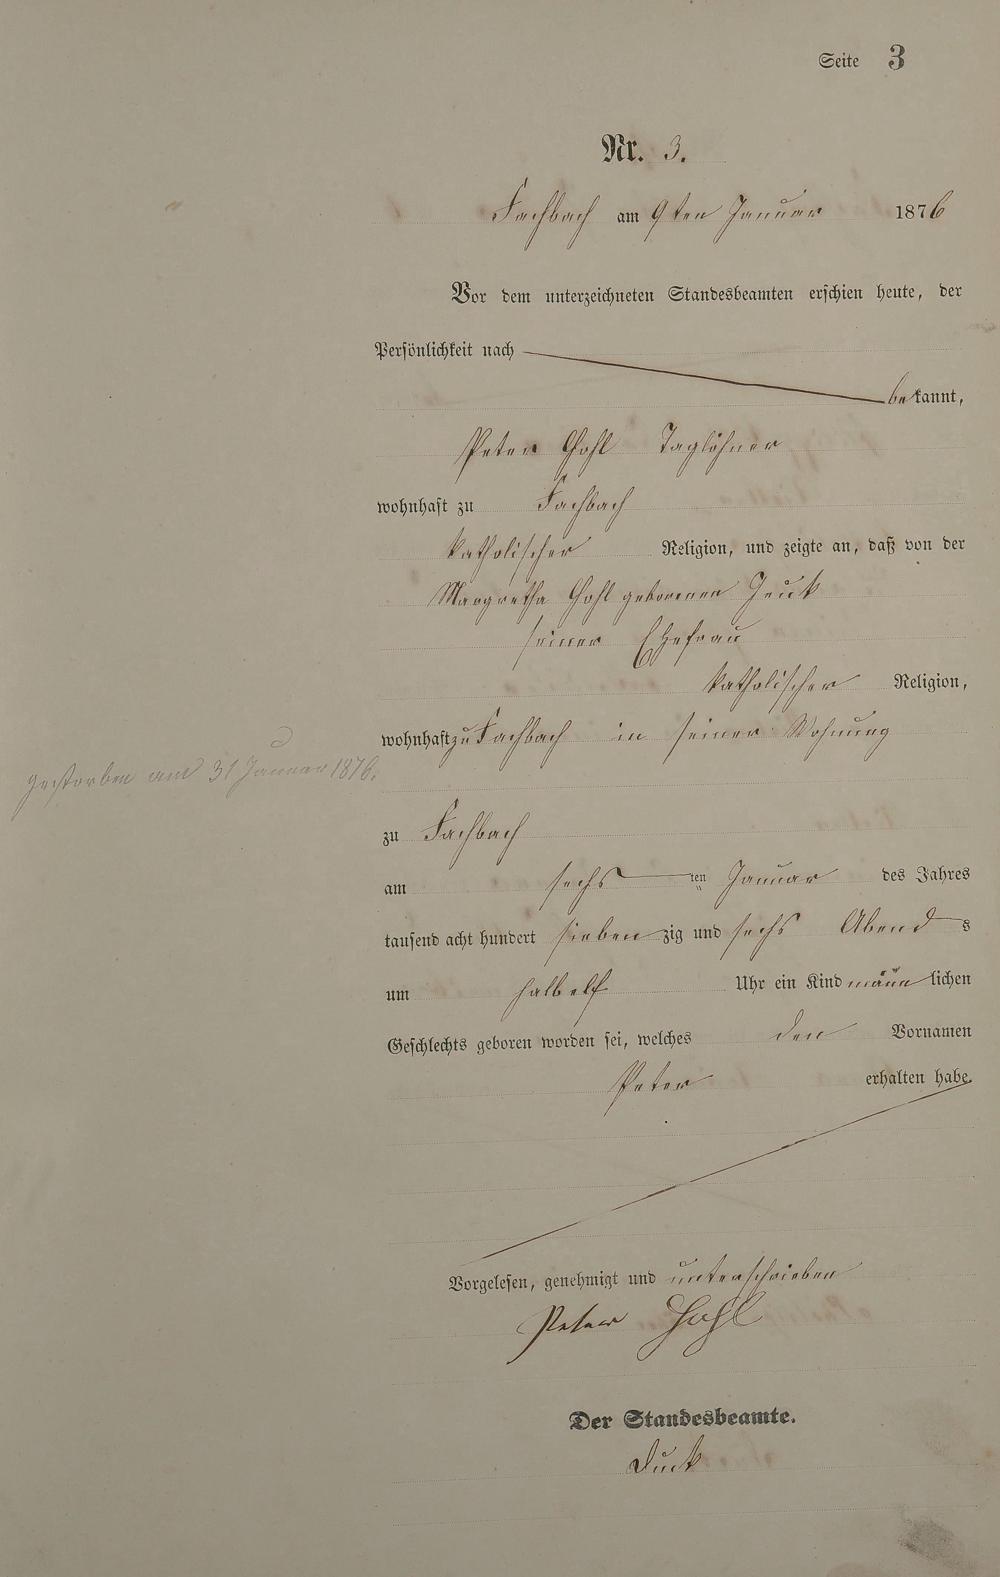 Seite 3
Nr. 3.
Fachbach am 9ten Januar 1876
Vor dem unterzeichneten Standesbeamten erschien heute, der
Persönlichkeit nach
bekannt,
Peter Gohl Taglöhner
wohnhaft zu Fachbach
katholischer Religion, und zeigte an, daß von der
Margretha Gohl geborenen Zeuk
seiner Ehefrau
katholischer Religion,
wohnhaft zu Fachbach in seiner Wohnung
gestorben am 31 Januar 1876.
zu Fachbach
am sechs ten Januar des Jahres
tausend acht hundert sieben zig und sechs Abend s
um halb elf Uhr ein Kind männlichen
Geschlechts geboren worden sei, welches den Vornamen
Peter erhalten habe.
Vorgelesen, genehmigt und unterschrieben
Peter Gohl
Der Standesbeamte.
Duck